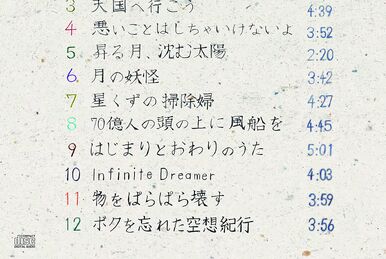 3 天国へ行こう 4:39
4 悪いことはしちゃいけないよ 3:52
5 昇る月、沈む太陽 2:20
6. 月の妖怪 3:42
7 星くずの掃除婦 4:27
8 70億人の頭の上に風船を 4:45
9 はじまりとおわりのうた 5:01
10 Infinite Dreamer 4:03
11 物をぱらぱら壊す 3:59
12 ボクを忘れた空想紀行 3:56